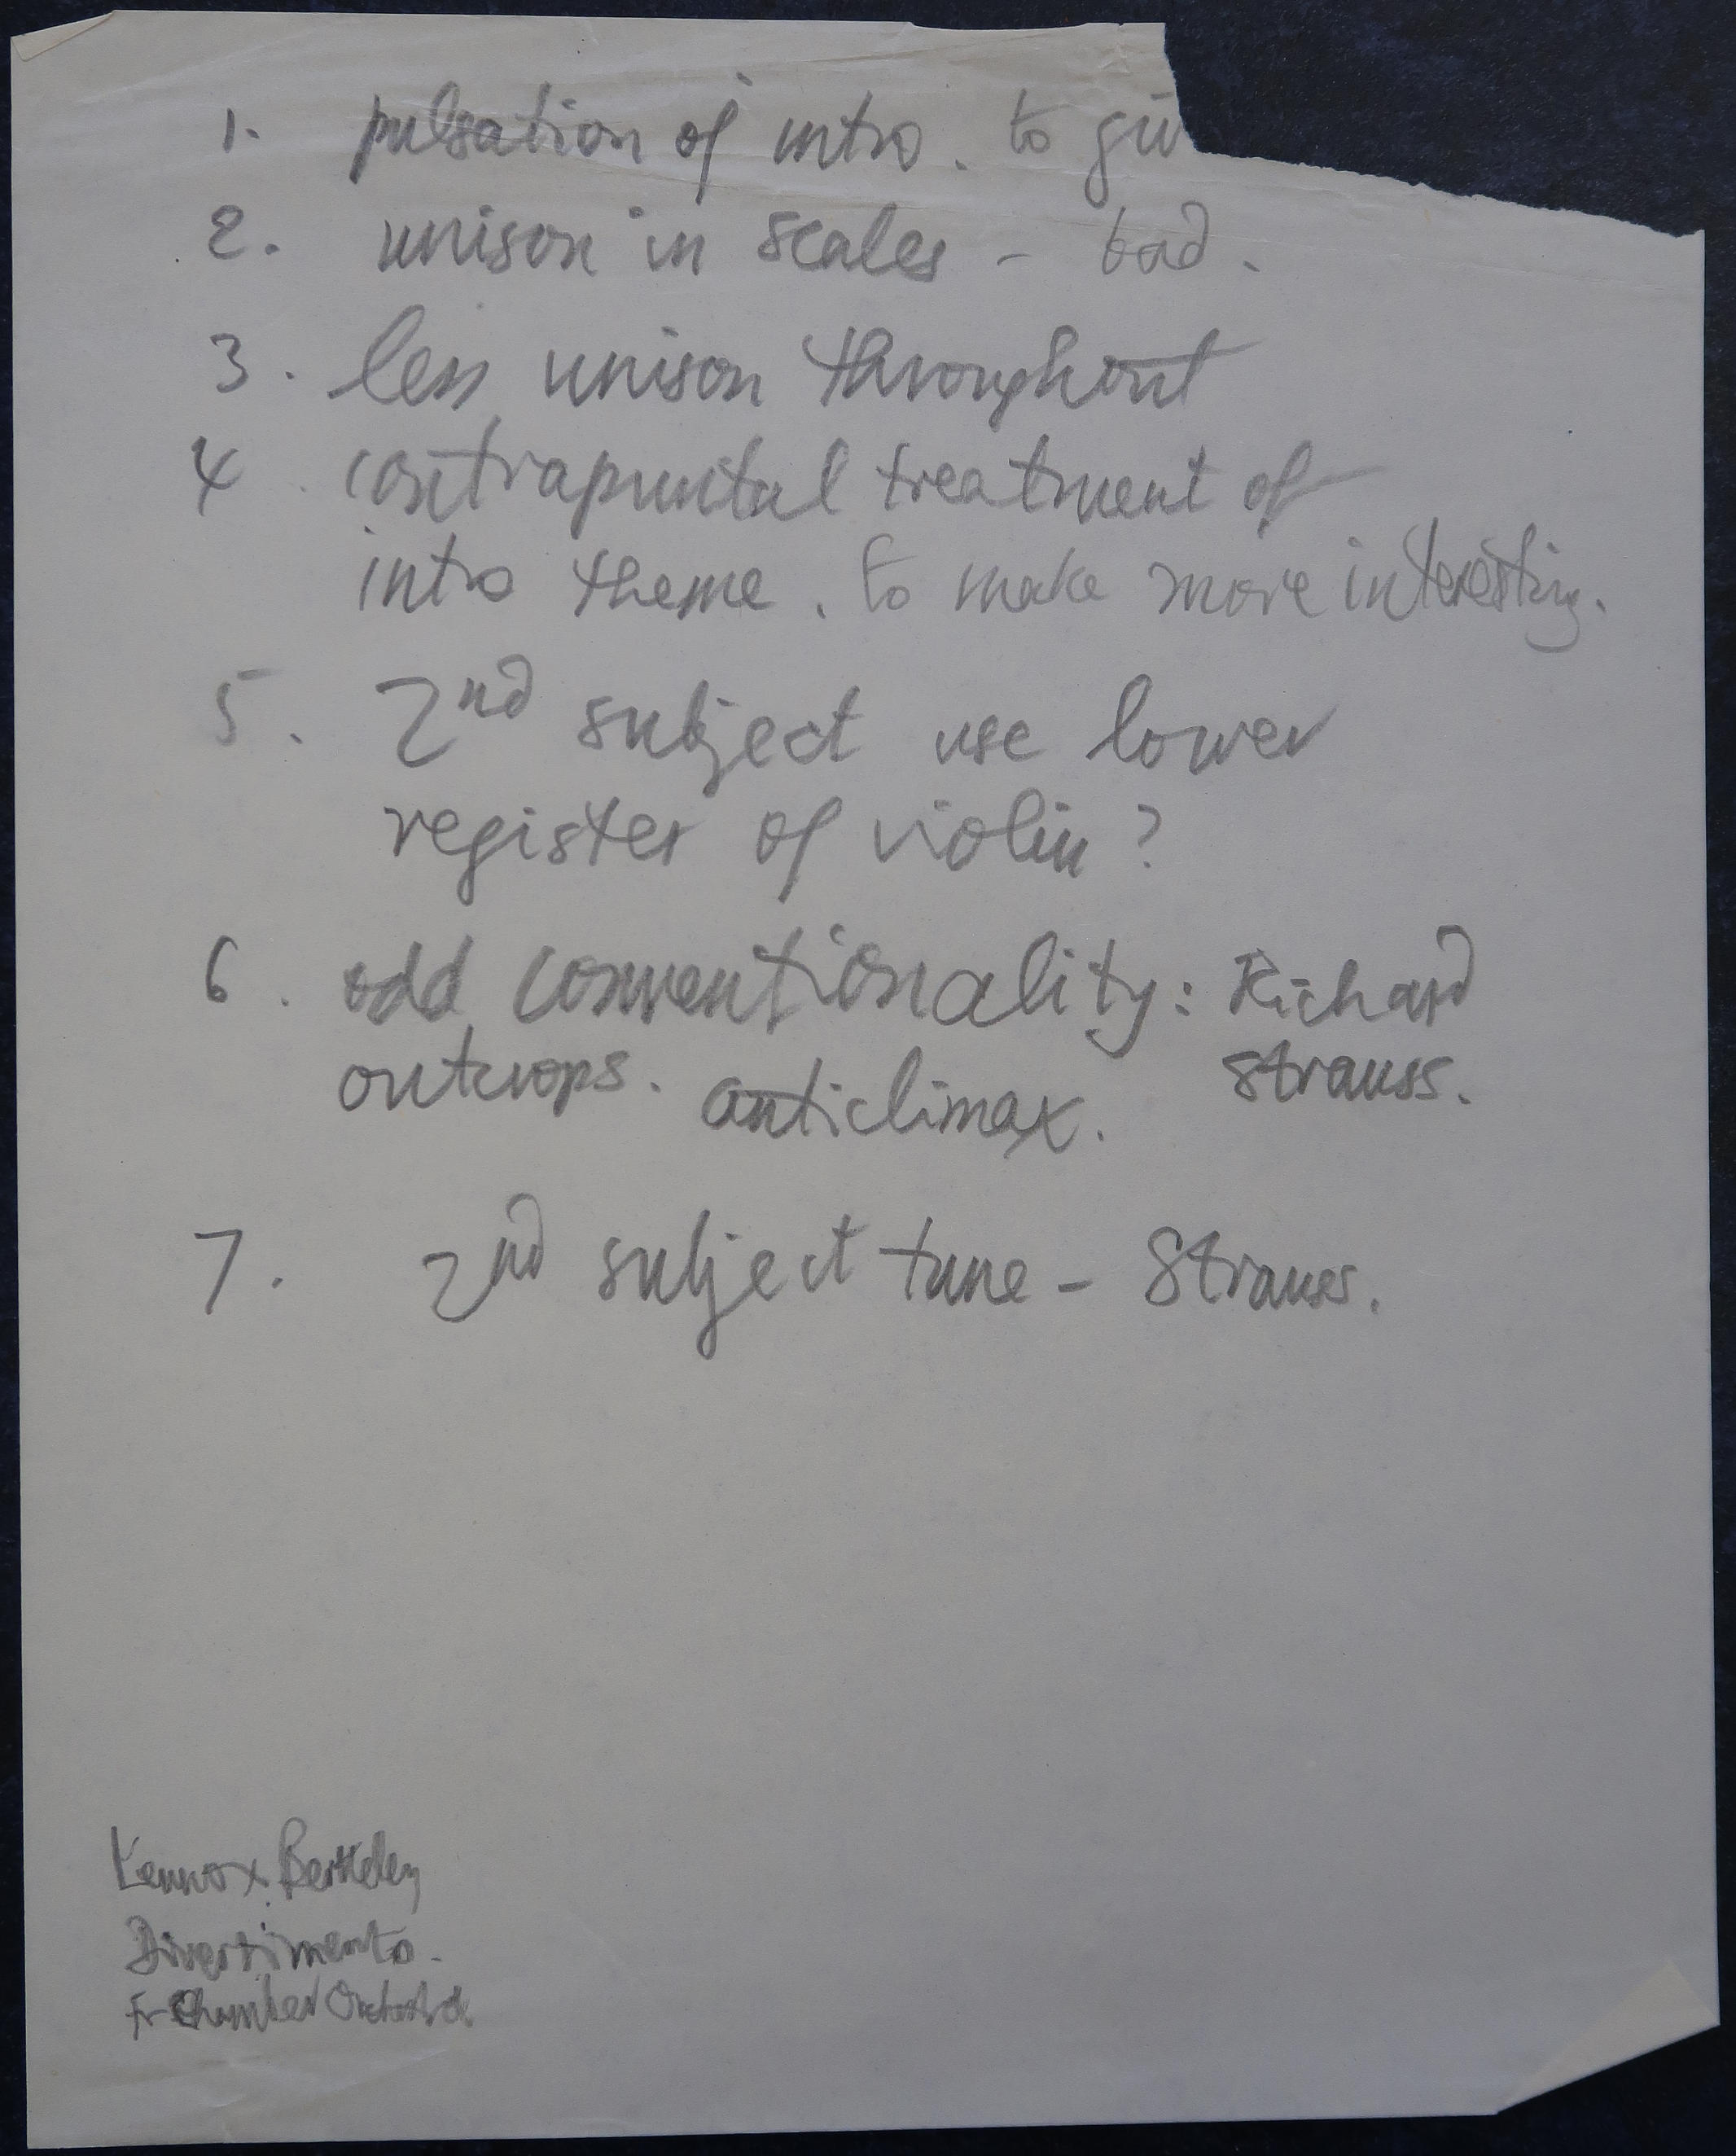 1. pulsation of intro. to giv
2. unison in scales - bad.
3. less unison throughout
4. contrapuntal treatment of
intro theme. to make more interesting.
5. 2nd subject use lower
register of violin?
6. odd conventionality: Richard
outcrops. anticlimax. Strauss.
7. 2nd subject tune - Strauss.
Lennox Berkeley
Divertimento.
Fr Chamber Orchestra